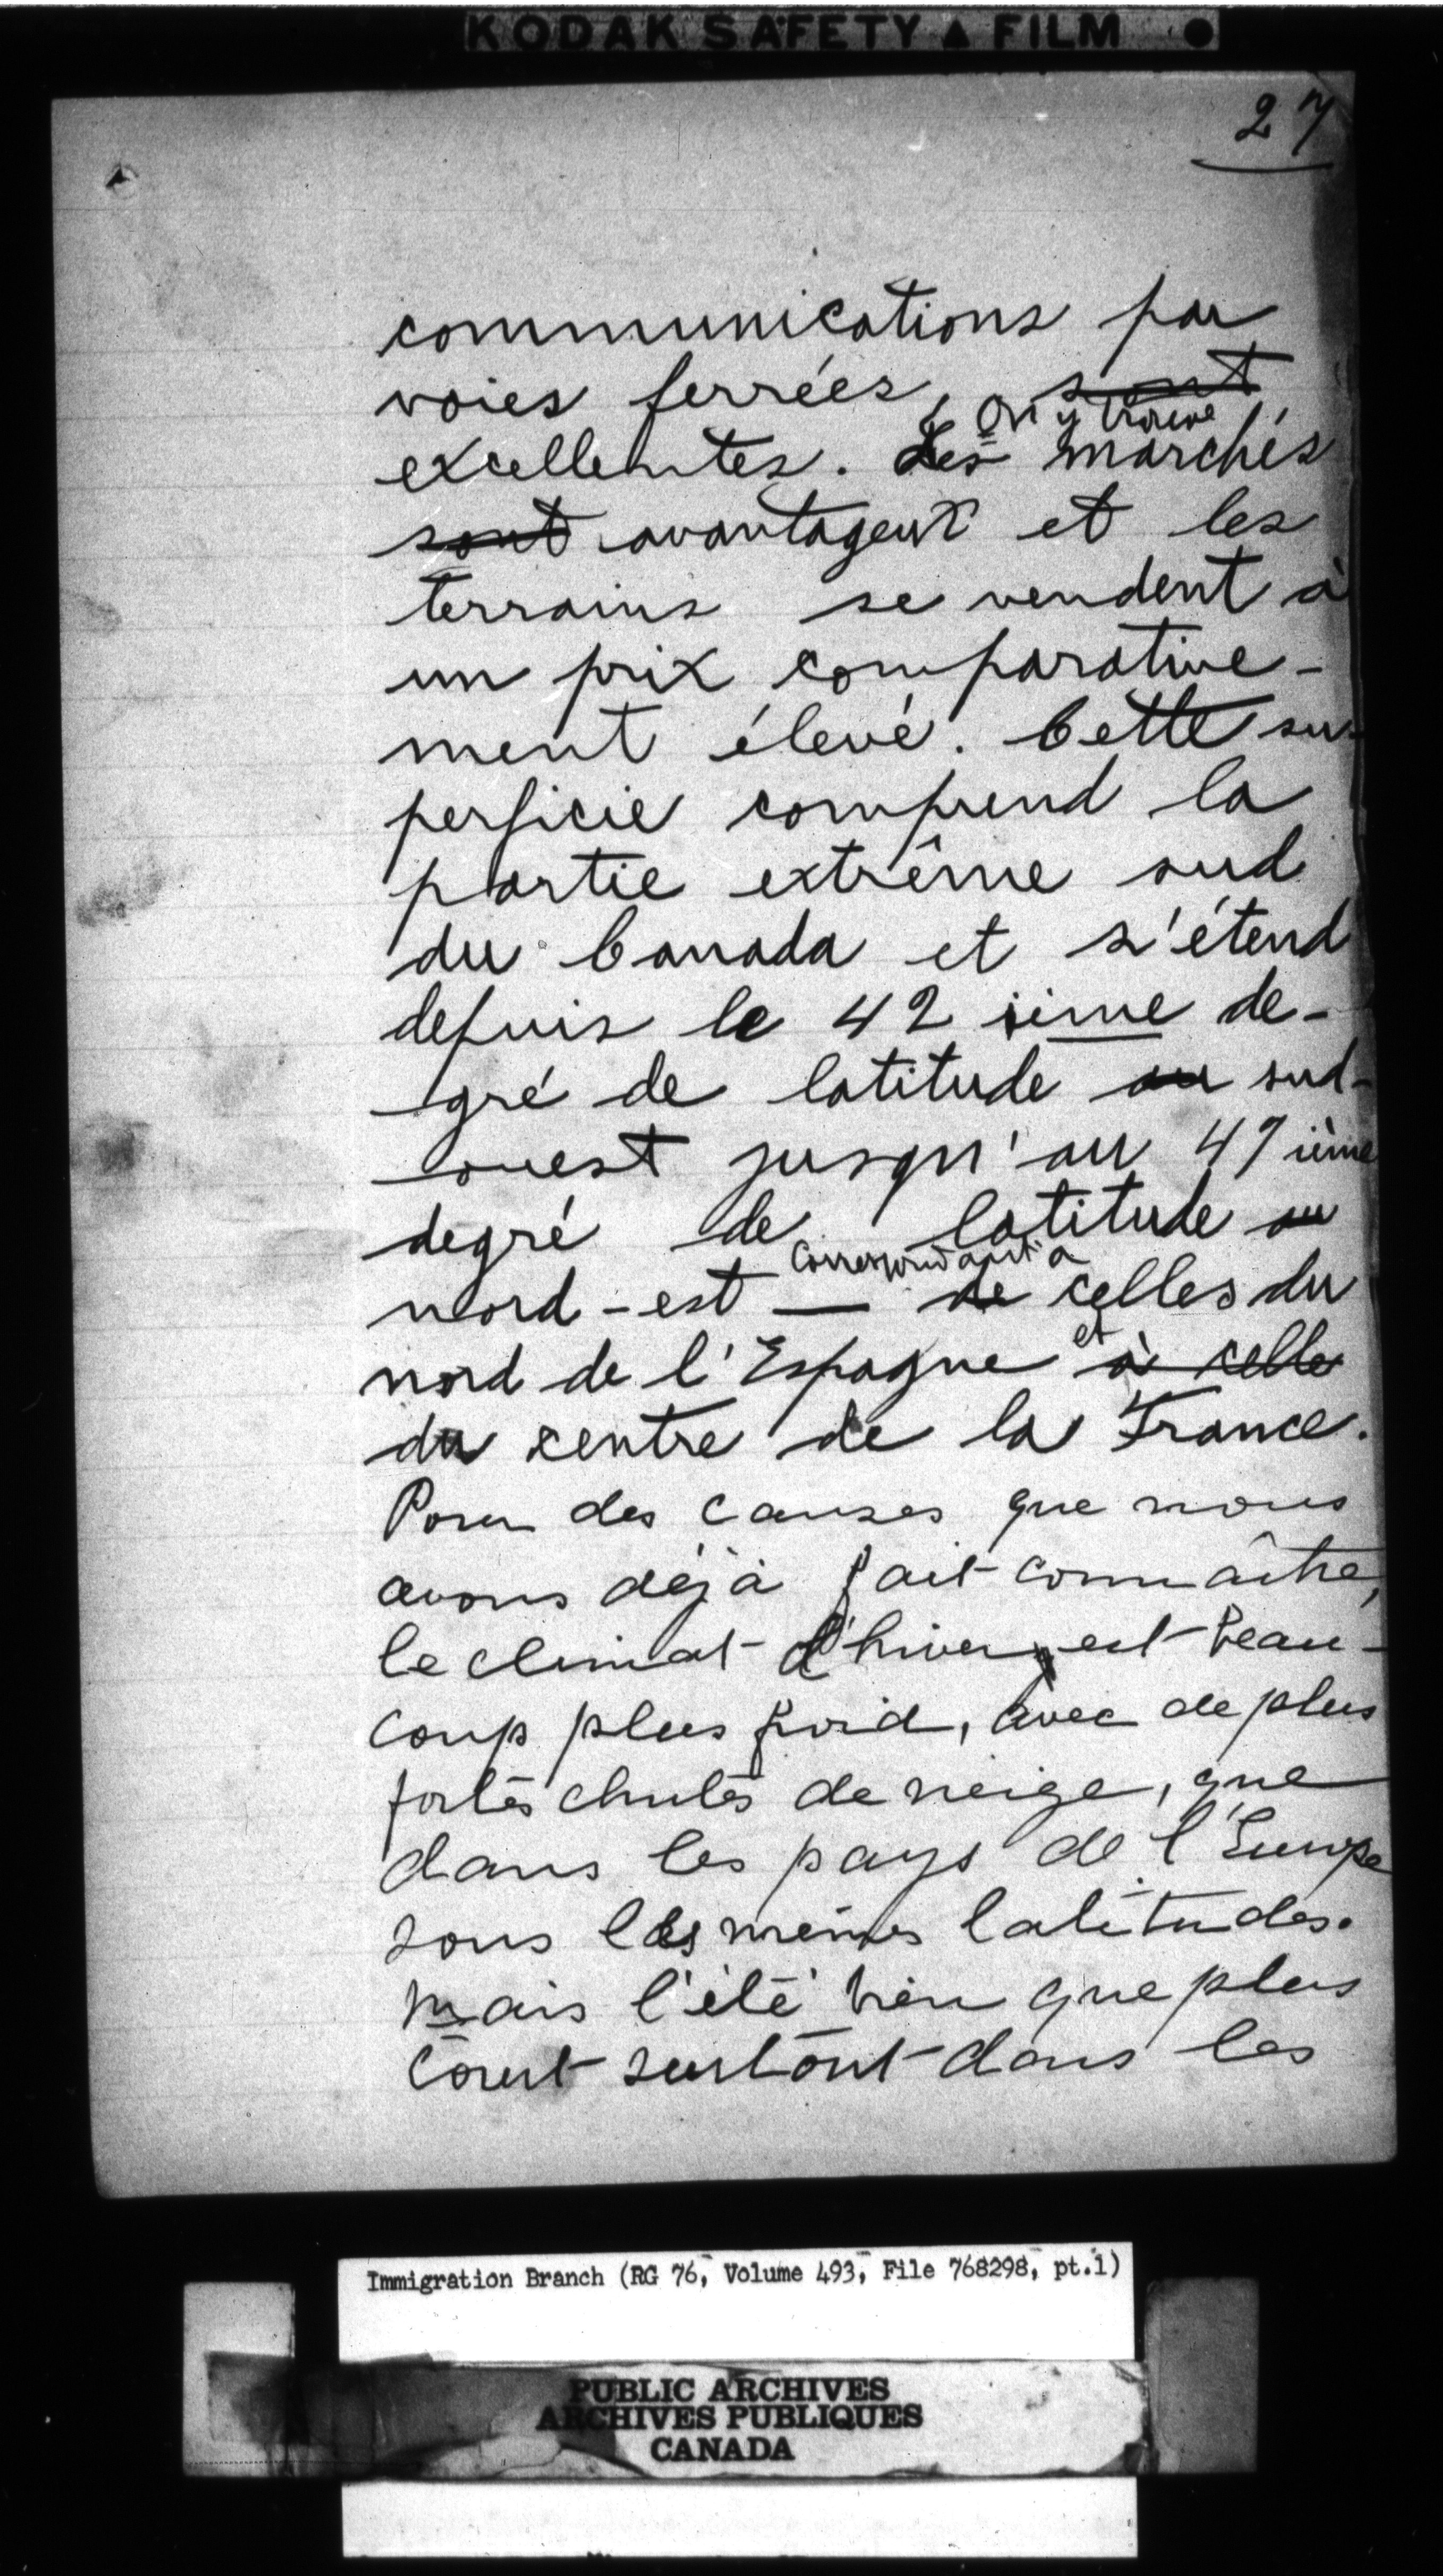 KODAK SAFETY ▲ FILM ●
27
communications par
voies ferrées, sont
On y trouve
excellentes. des marchés
sont avantageux et les
terrains se vendent à
un prix comparative-
ment élevé. Cette su-
perficie comprend la
partie extrême sud
du Canada et s'étend
depuis le 42 ième de-
gré de latitude au sud-
ouest jusqu'au 47 ième
degré de latitude au
correspondant à
nord-est — de celles du
et
nord de l'Espagne à celle
du centre de la France.
Pour des causes que nous
avons déjà fait connaître,
le climat d'hiver est beau-
coup plus froid, avec de plus
fortes chutes de neige, que
dans les pays de l'Europe
sous les mêmes latitudes.
Mais l'été bien que plus
court surtout dans les
Immigration Branch (RG 76, Volume 493, File 768298, pt.1)
PUBLIC ARCHIVES
ARCHIVES PUBLIQUES
CANADA